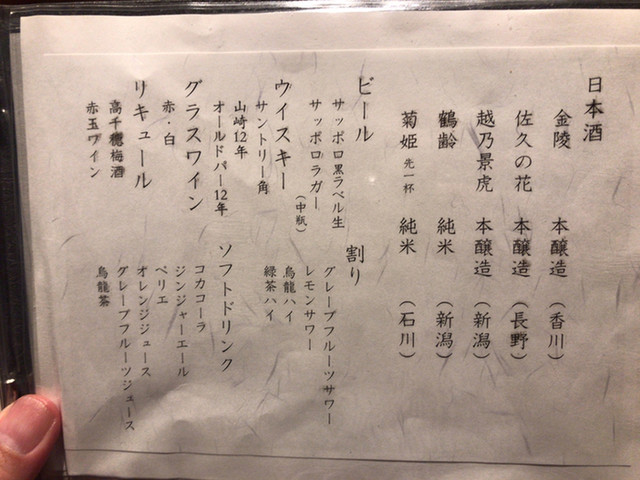 日本酒
金陵 本醸造 (香川)
佐久の花 本醸造 (長野)
越乃景虎 本醸造 (新潟)
鶴齢 純米 (新潟)
菊姫 先一杯 純米 (石川)
ビール
サッポロ黒ラベル生
サッポロラガー
(中瓶)
ウイスキー
サントリー角
山崎12年
オールドパー12年
グラスワイン
赤・白
リキュール
高千穂梅酒
赤玉ワイン
割り
グレープフルーツサワー
レモンサワー
烏龍ハイ
緑茶ハイ
ソフトドリンク
コカコーラ
ジンジャーエール
ペリエ
オレンジジュース
グレープフルーツジュース
烏龍茶